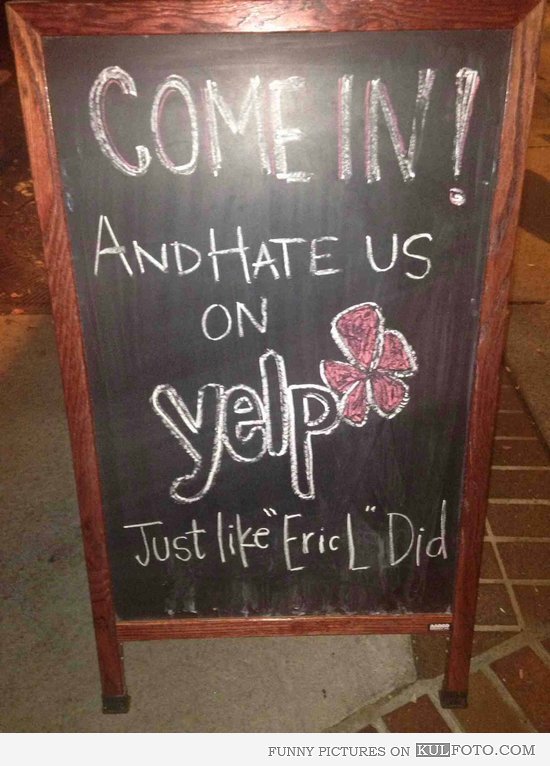 COME IN!
AND HATE US
ON
yelp
Just like "Eric L" Did
FUNNY PICTURES ON KULFOTO.COM